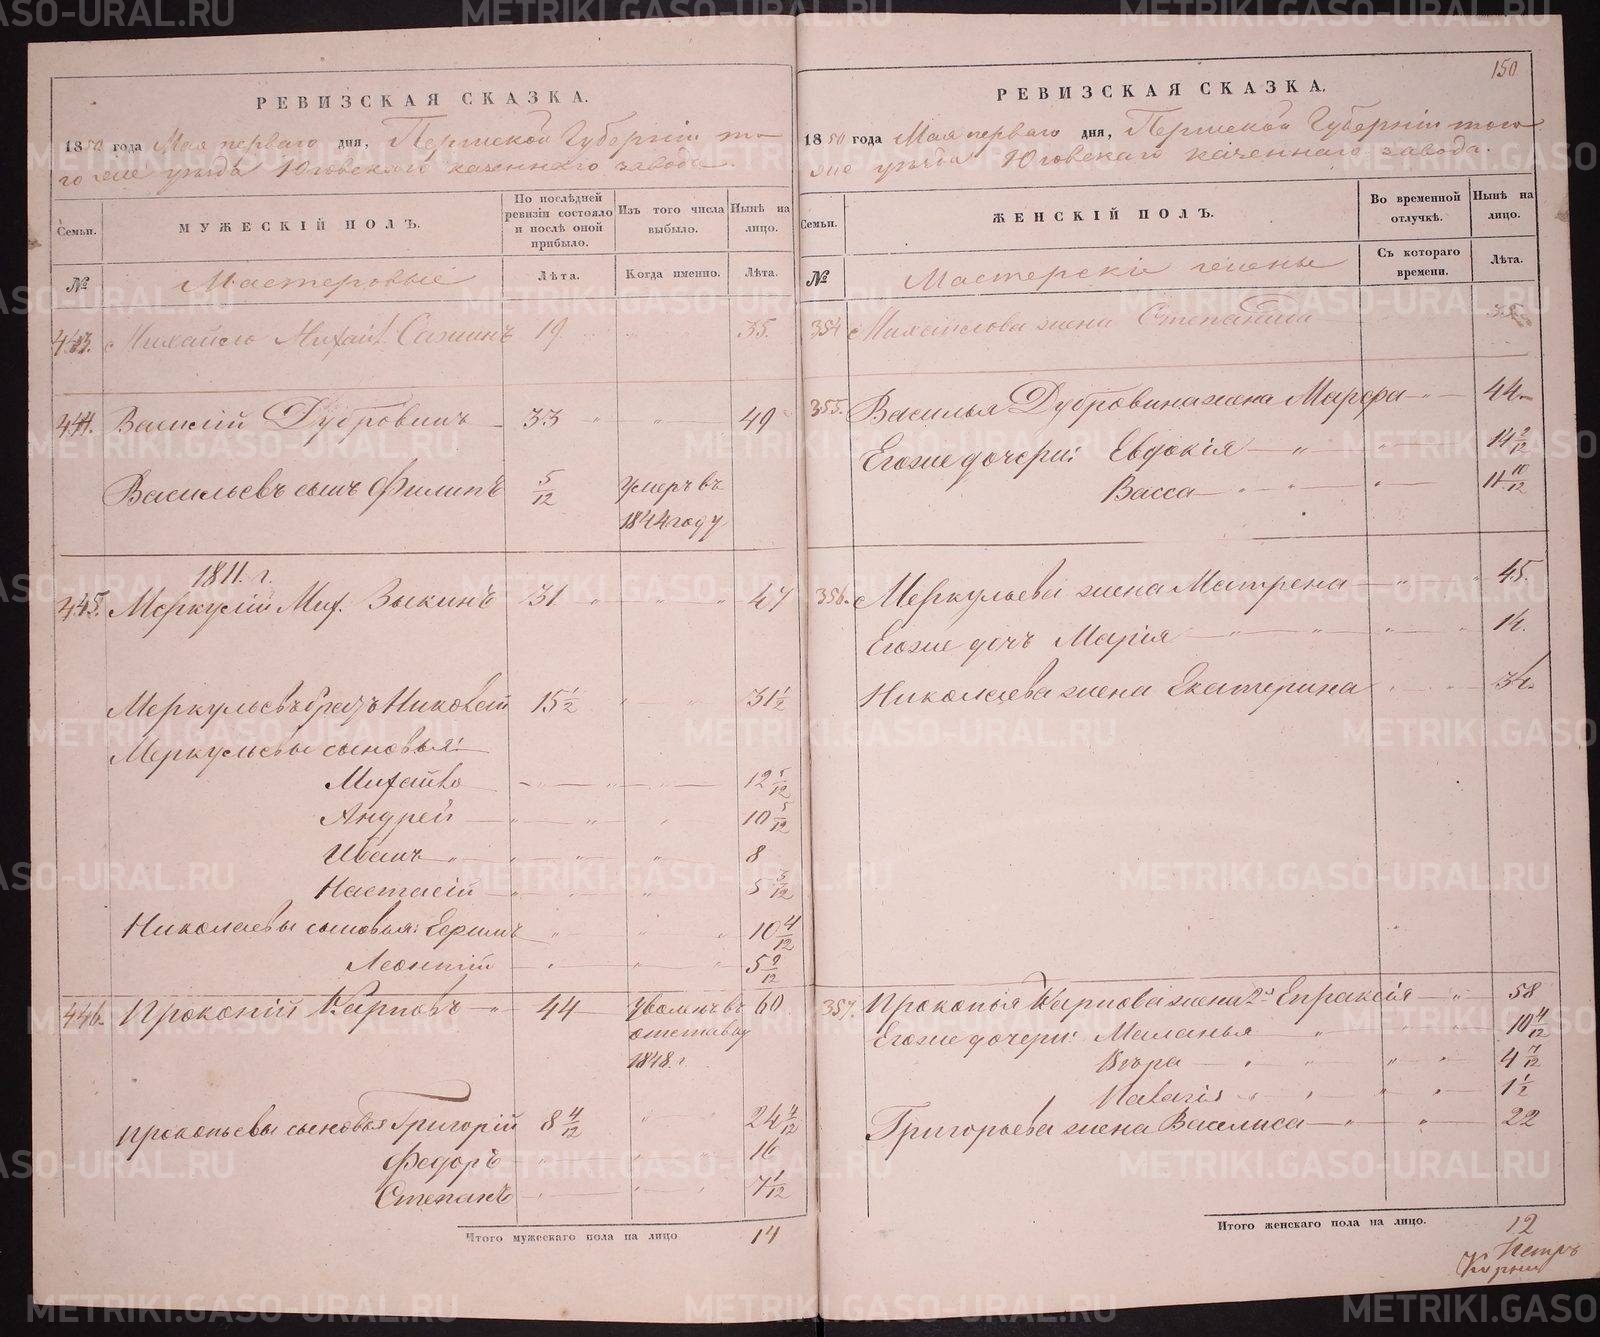 РЕВИЗСКАЯ СКАЗКА.
1850 года Мая перваго дня, Пермской Губерніи то-
го же уезда Юговскаго казеннаго завода.
Семьи.
МУЖЕСКІЙ ПОЛЪ.
По послѣдней ревизіи состояло и послѣ оной прибыло.
Изъ того числа выбыло.
Нынѣ на лицо.
№
Мастеровые
Лѣта.
Когда именно.
Лѣта.
443. Михайло Михайл. Сажинъ 19 35.
444. Василій Дубровинъ 33 49
Васильевъ сынъ Филипъ 5/12 Умеръ въ
1844 году
1811. г.
445. Меркулій Мих. Зыкинъ 31 47
Меркульевъ братъ Николай 15 1/2 31 1/2
Меркульевы сыновья:
Михайло 12 5/12
Андрей 10 5/12
Иванъ 8
Настасій 5 3/12
Николаевы сыновья: Ефимъ 10 4/12
Леонтій 5 9/12
446. Прокопій Карповъ 44 Уволенъ въ 60
отставку
1848. г.
Прокопьевы сыновья Григорій 8 4/12 24 4/12
Федоръ 16
Степанъ 7 1/12
Итого мужескаго пола на лицо 14
150
РЕВИЗСКАЯ СКАЗКА.
1850 года Мая перваго дня, Пермской Губерніи того
же уезда Юговскаго казеннаго завода.
Семьи.
ЖЕНСКІЙ ПОЛЪ.
Во временной отлучкѣ.
Нынѣ на лицо.
№
Мастерскіе жены
Съ котораго времени.
Лѣта.
354 Михайлова жена Степанида 35
355. Василья Дубровина жена Марфа 44
Его же дочери: Евдокія 14 2/12
Васса 11 10/12
356. Меркульева жена Матрена 45.
Его же дочь Марія 14.
Николаева жена Екатерина 34.
357. Прокопья Карпова жена 2я Епраксія 58
Его же дочери: Маланья 10 4/12
Вѣра 4 7/12
1 1/2
Григорьева жена Василиса 22
Итого женскаго пола на лицо. 12
Петръ